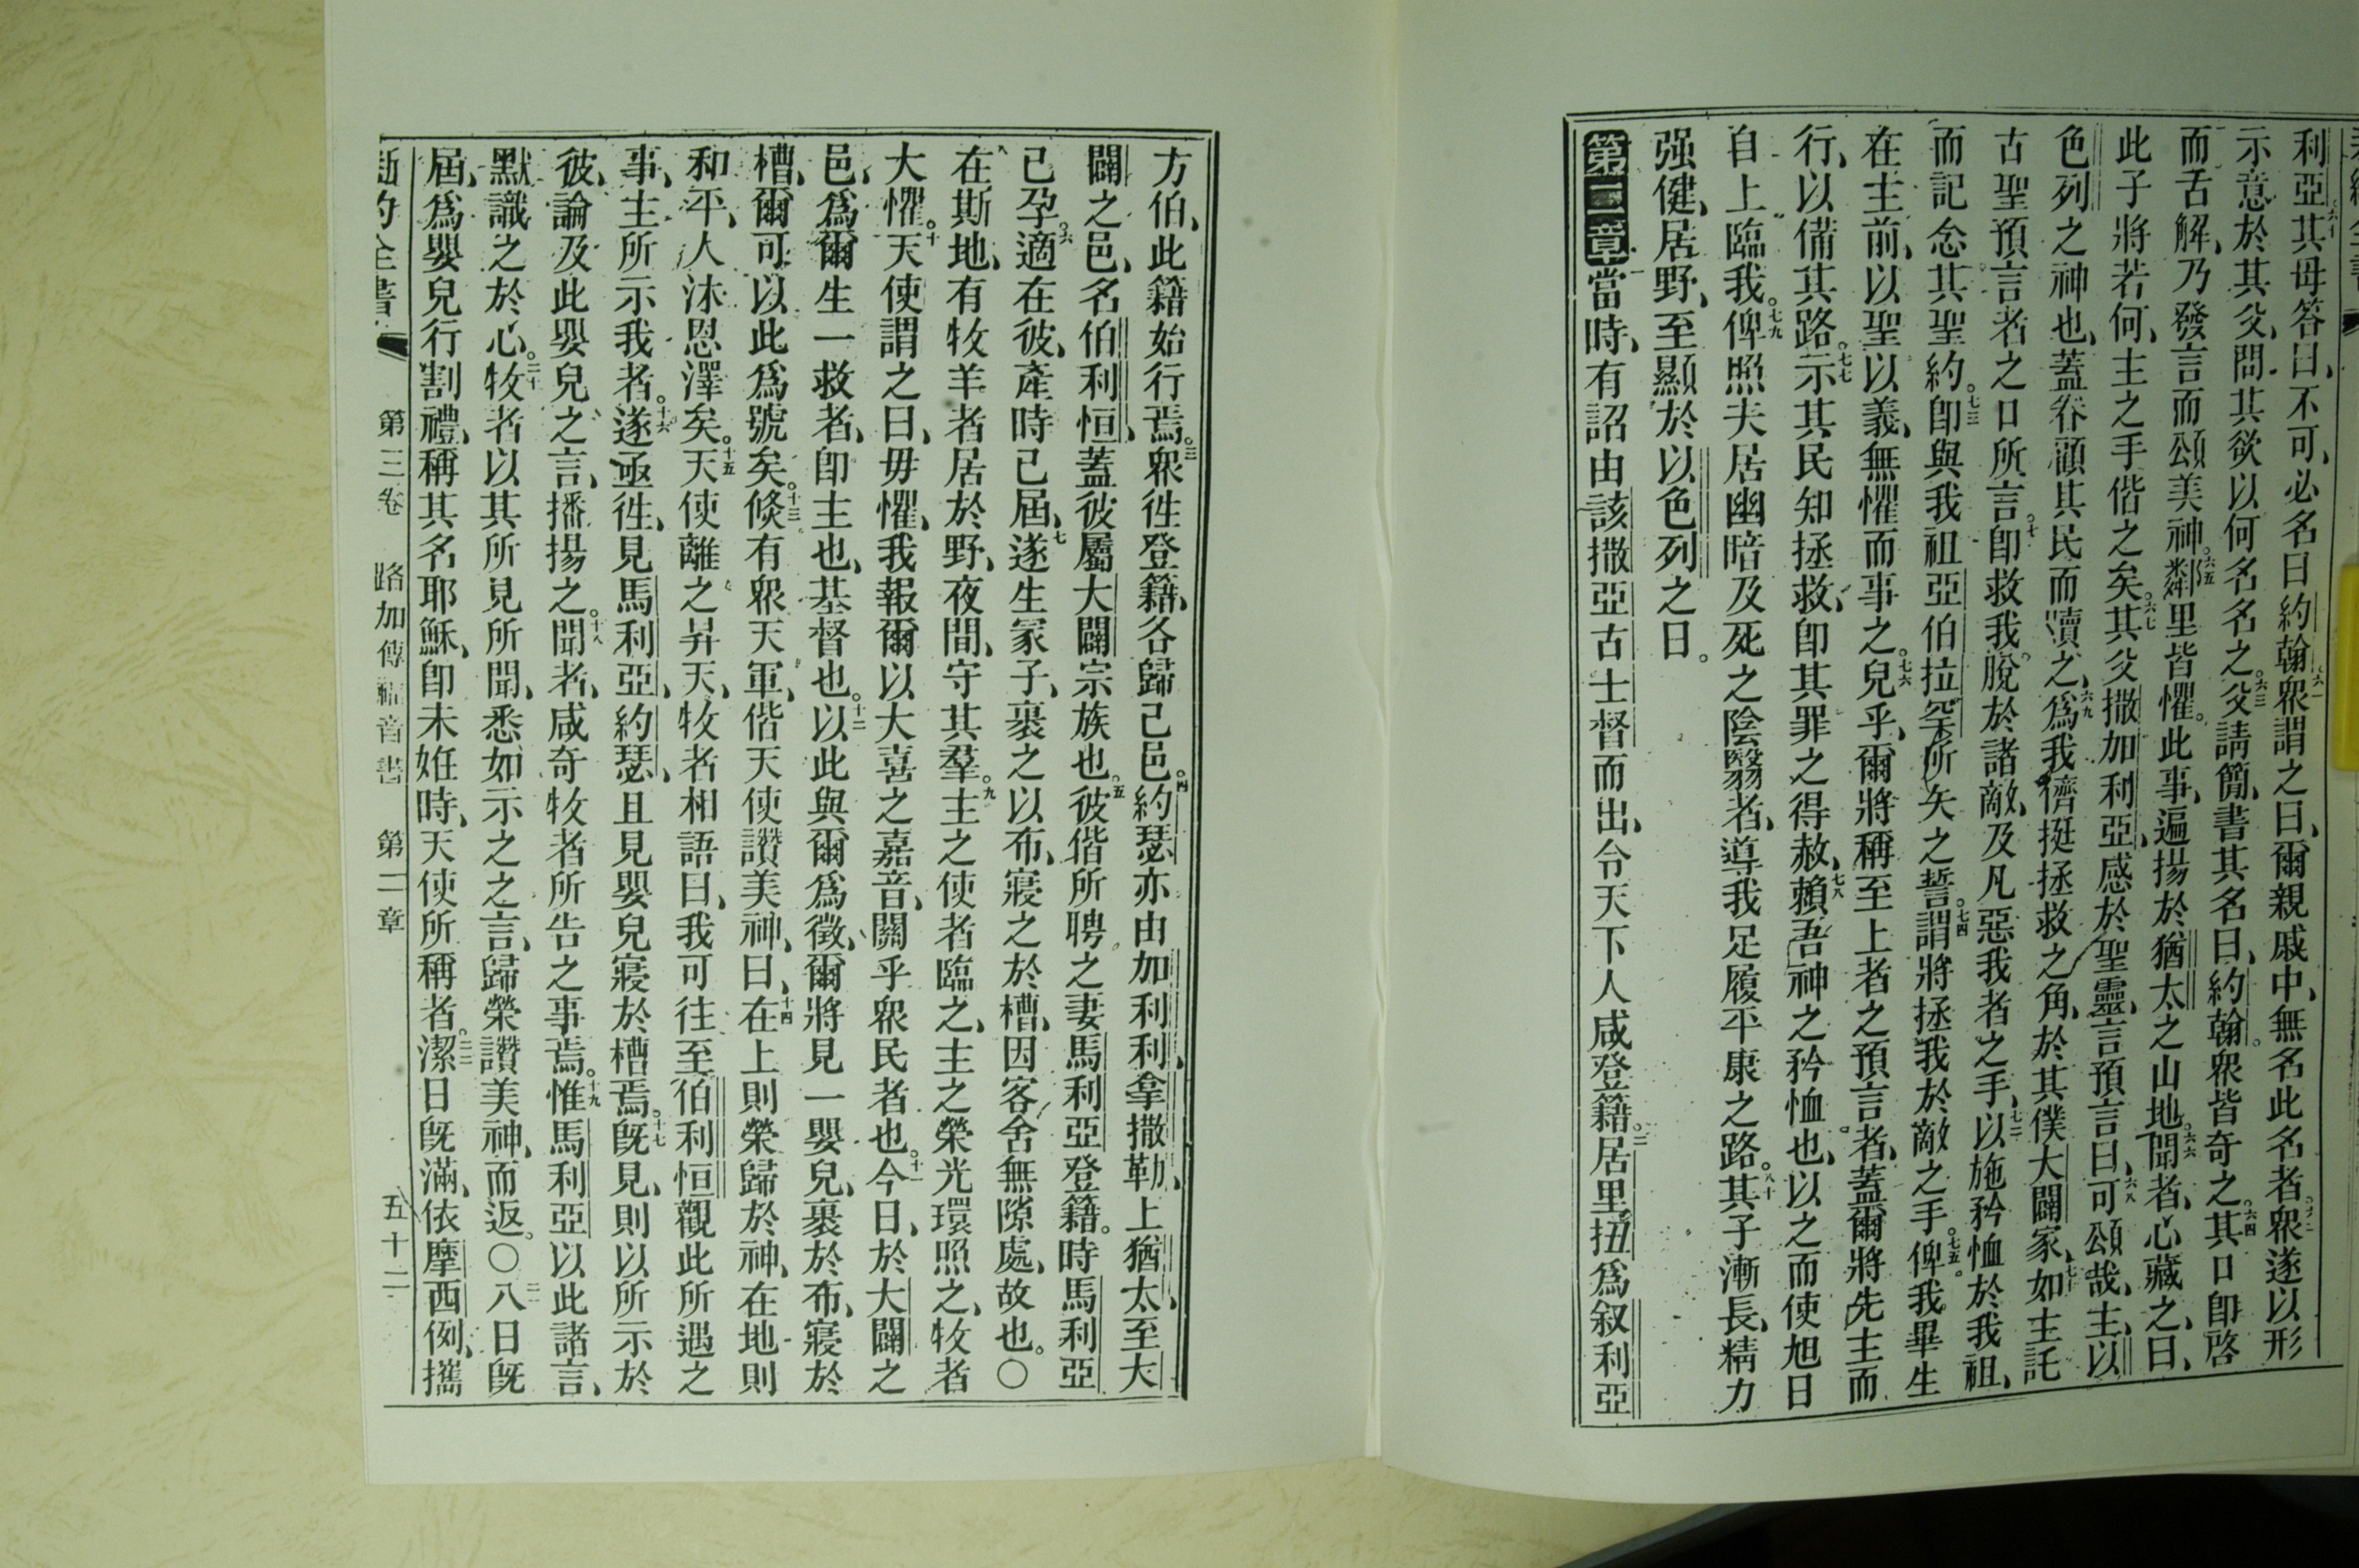 利亞六十其母答曰、不可、必名曰約翰、六一衆謂之曰、爾親戚中、無名此名者。六二衆遂以形
示意於其父、問其欲以何名名之。六三父請簡、書其名曰、約翰。衆皆奇之。六四其口卽啓
而舌解、乃發言而頌美神。六五鄰里皆懼。此事、遍揚於猶太之山地。六六聞者、心藏之、曰、
此子將若何、主之手偕之矣。六七其父撒加利亞、感於聖靈、言預言曰、六八可頌哉、主、以
色列之神也、蓋眷顧其民而贖之、六九爲我儕挺拯救之角、於其僕大闢家、七十如主託
古聖預言者之口所言。七一卽救我。脫於諸敵、及凡惡我者之手、七二以施矜恤於我祖、
而記念其聖約。七三卽與我祖亞伯拉罕所矢之誓。七四謂將拯我於敵之手。七五俾我畢生
在主前、以聖以義、無懼而事之。七六兒乎、爾將稱至上者之預言者、蓋爾將先主而
行、以備其路。七七示其民知拯救、卽其罪之得赦、七八賴吾神之矜恤也、以之而使旭日
自上臨我。七九俾照夫居幽暗及死之陰翳者、導我足履平康之路。八十其子漸長、精力
强健、居野、至顯於以色列之日。
第二章當時、有詔由該撒亞古士督而出、令天下人咸登籍。二居里扭爲叙利亞
方伯、此籍始行焉。三衆徃登籍、各歸己邑。四約瑟亦由加利利、拿撒勒、上猶太、至大
闢之邑、名伯利恒、蓋彼屬大闢宗族也。五彼偕所聘之妻馬利亞登籍。時馬利亞
已孕。六適在彼、產時已屆、七遂生冢子、裹之以布、寢之於槽、因客舍無隙處、故也。〇
在斯地、有牧羊者居於野、夜間、守其羣。九主之使者臨之、主之榮光環照之、牧者
大懼。十天使謂之曰、毋懼、我報爾以大喜之嘉音、關乎衆民者也。十一今日、於大闢之
邑、爲爾生一救者、卽主也、基督也。十二以此與爾爲徵、爾將見一嬰兒、裹於布、寢於
槽、爾可以此爲號矣。十三倐有衆天軍、偕天使讚美神、曰、十四在上則榮歸於神、在地則
和平、人沐恩澤矣。十五天使離之昇天、牧者相語曰、我可往至伯利恒觀此所遇之
事、主所示我者。十六遂亟徃、見馬利亞、約瑟、且見嬰兒寢於槽焉。十七旣見、則以所示於
彼、論及此嬰兒之言、播揚之。十八聞者、咸奇牧者所告之事焉。十九惟馬利亞以此諸言、
默識之於心。二十牧者以其所見所聞、悉如示之之言、歸榮讚美神、而返。〇二一八日旣
屆、爲嬰兒行割禮、稱其名耶穌、卽未姙時、天使所稱者。二二潔日旣滿、依摩西例、攜
新約全書 第三卷 路加傳福音書 第二章 五十二